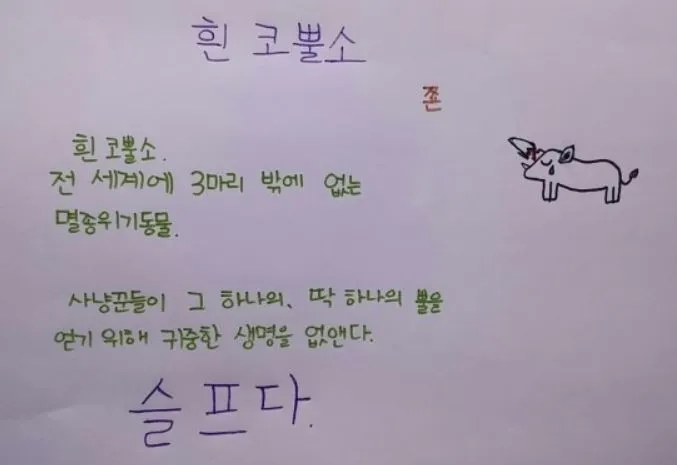 흰 코뿔소
쫀
흰 코뿔소.
전 세계에 3마리 밖에 없는
멸종위기동물.
사냥꾼들이 그 하나의, 딱 하나의 뿔을
얻기 위해 귀중한 생명을 없앤다.
슬프다.